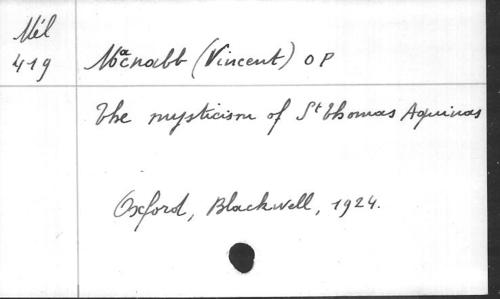 Mél
419
Macnabb (Vincent) OP
The mysticism of St Thomas Aquinas
Oxford, Blackwell, 1924.